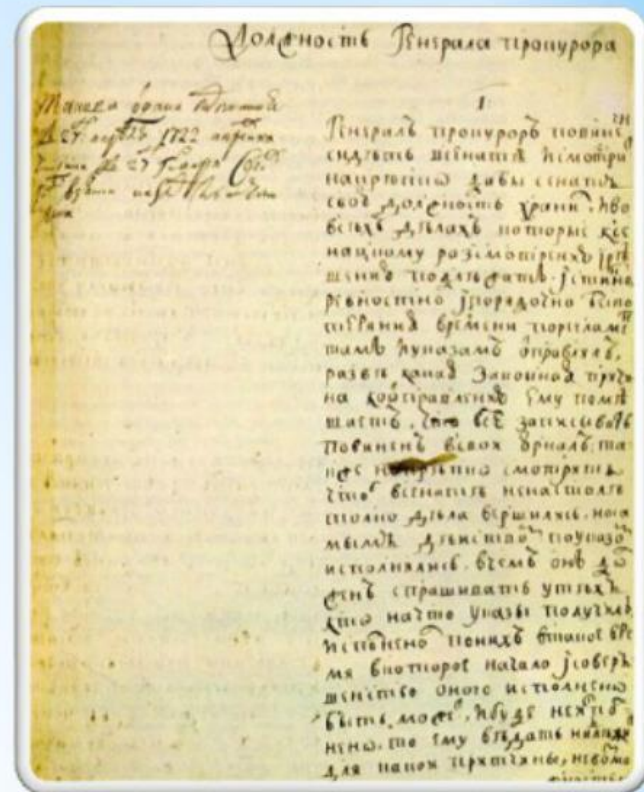 Должность Генерала прокурора
1722
I
Генералъ прокуроръ повине
сидѣть всенатѣ ісмотрить
накрѣпко дабы сенатъ
свою должность храни, иво
всѣхъ дѣлахъ которые ксе
нацкому разсмотрению ірѣ
шению подлежатъ. істинно
ревностно іпорядочно безпо
теряния времени порегламе
тамъ иуказамъ отправлялъ,
развѣ какая законная причи
на коотправлению ему помѣ
шаетъ, что все записывать
повиненъ всвои журналъ, та
кже накрѣпко смотрить
чтоб всенатѣ ненастолѣ
толко дѣла вершились. носа
мымъ дѣиствомъ поуказо
исполнялись. вчемъ онъ до
женъ спрашивать утѣхъ
кто начто указы получилъ
исполнено понихъ втакое вре
мя вкоторое начало ісовер
шенство оного исполнено
быть може, ибуде неиспо
нено, то ему вѣдать надле
для какои причины, невозмо